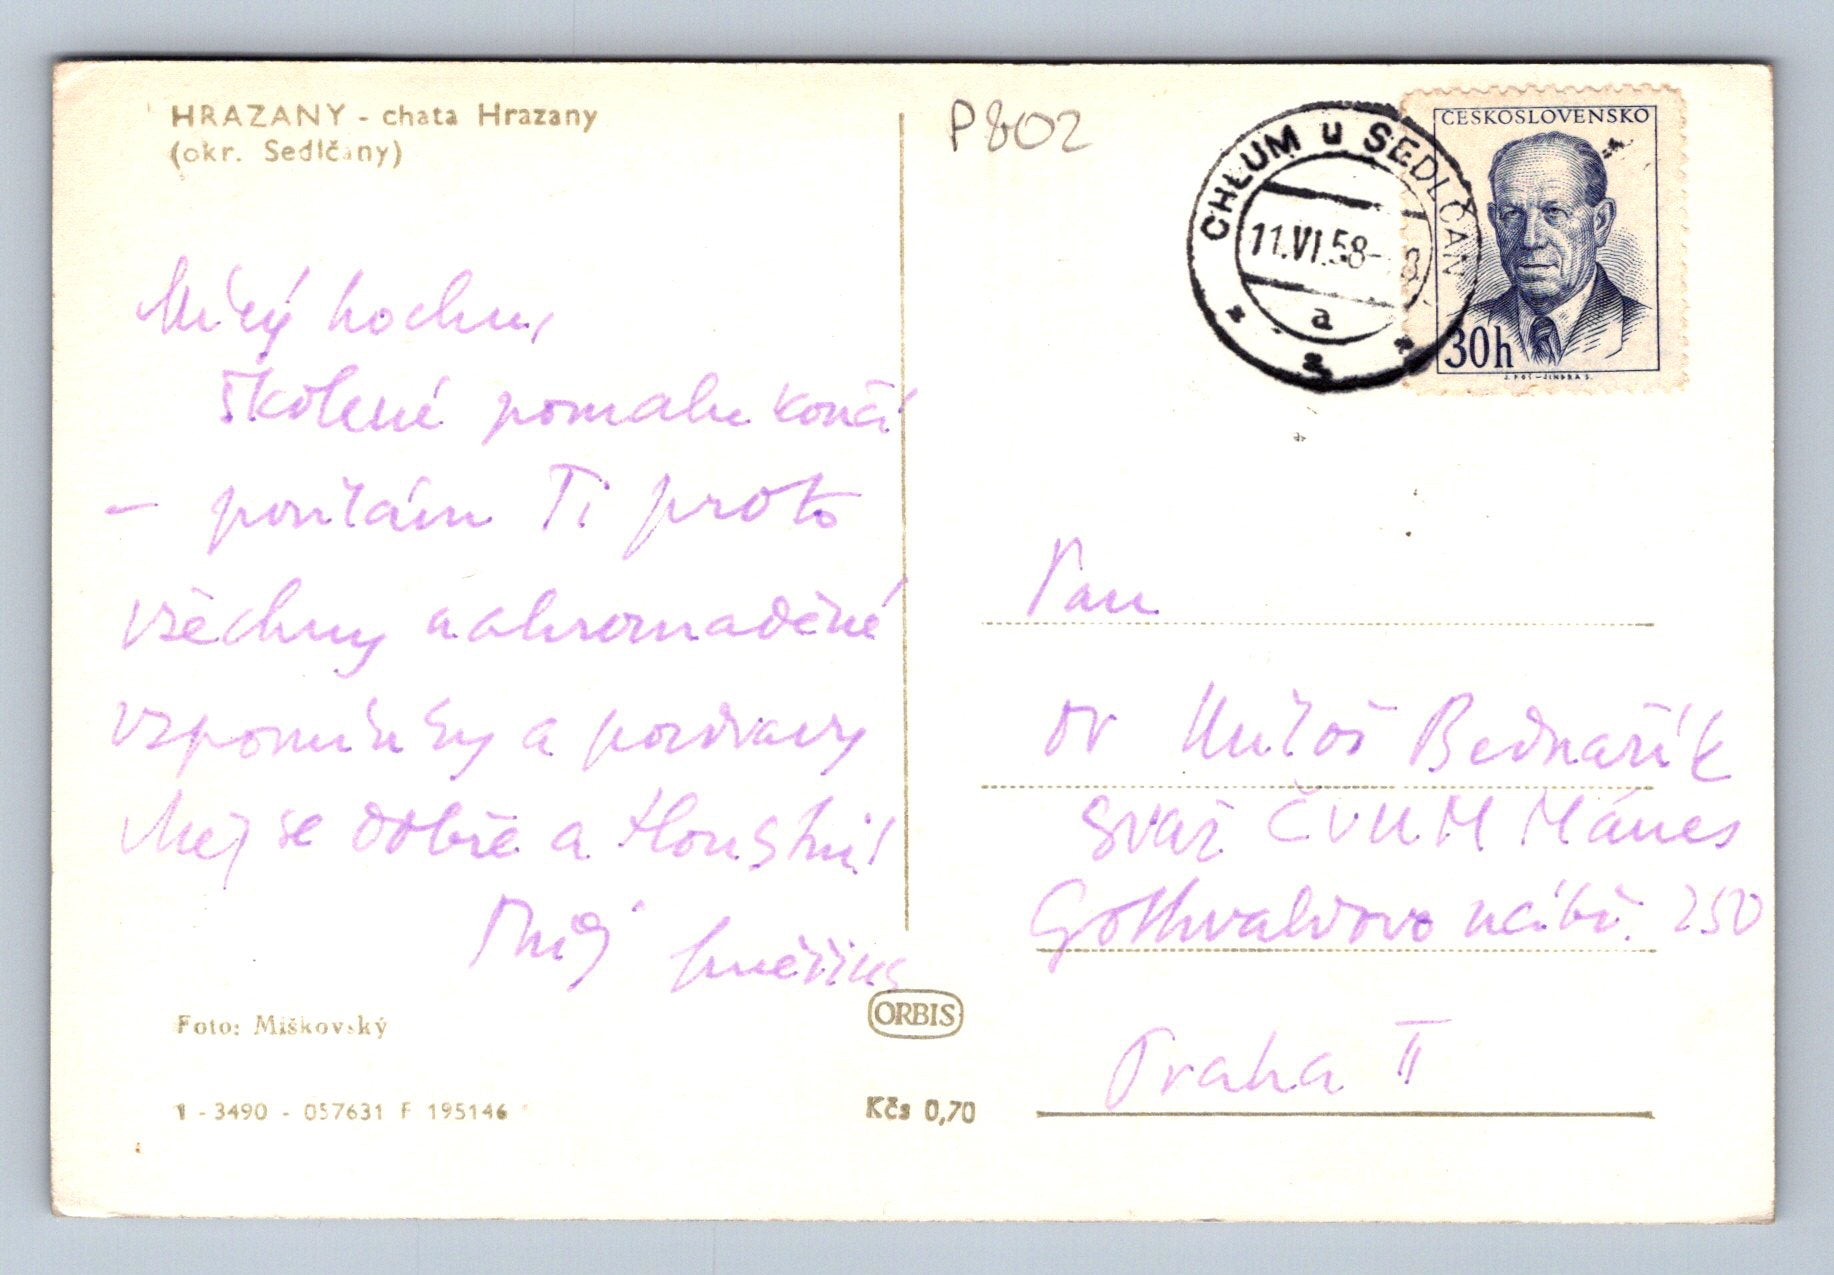 HRAZANY - chata Hrazany
(okr. Sedlčany)
P802
CHLUM u SEDLČAN
11.VI.58-8
a
ČESKOSLOVENSKO
30h
J. ŠVEC - JINDRA S.
Milý hochu,
školené pomalu končí
- posílám Ti proto
všechny nahromaděné
vzpomínky a pozdravy
Měj se dobře a tloustni!
Tvůj
Pan
Dr Miloš Bednařík
svaz ČVUM Mánes
Gottwaldovo nábř. 250
Praha II
Foto: Miškovský
ORBIS
1 - 3490 - 057631 F 195146
Kčs 0,70